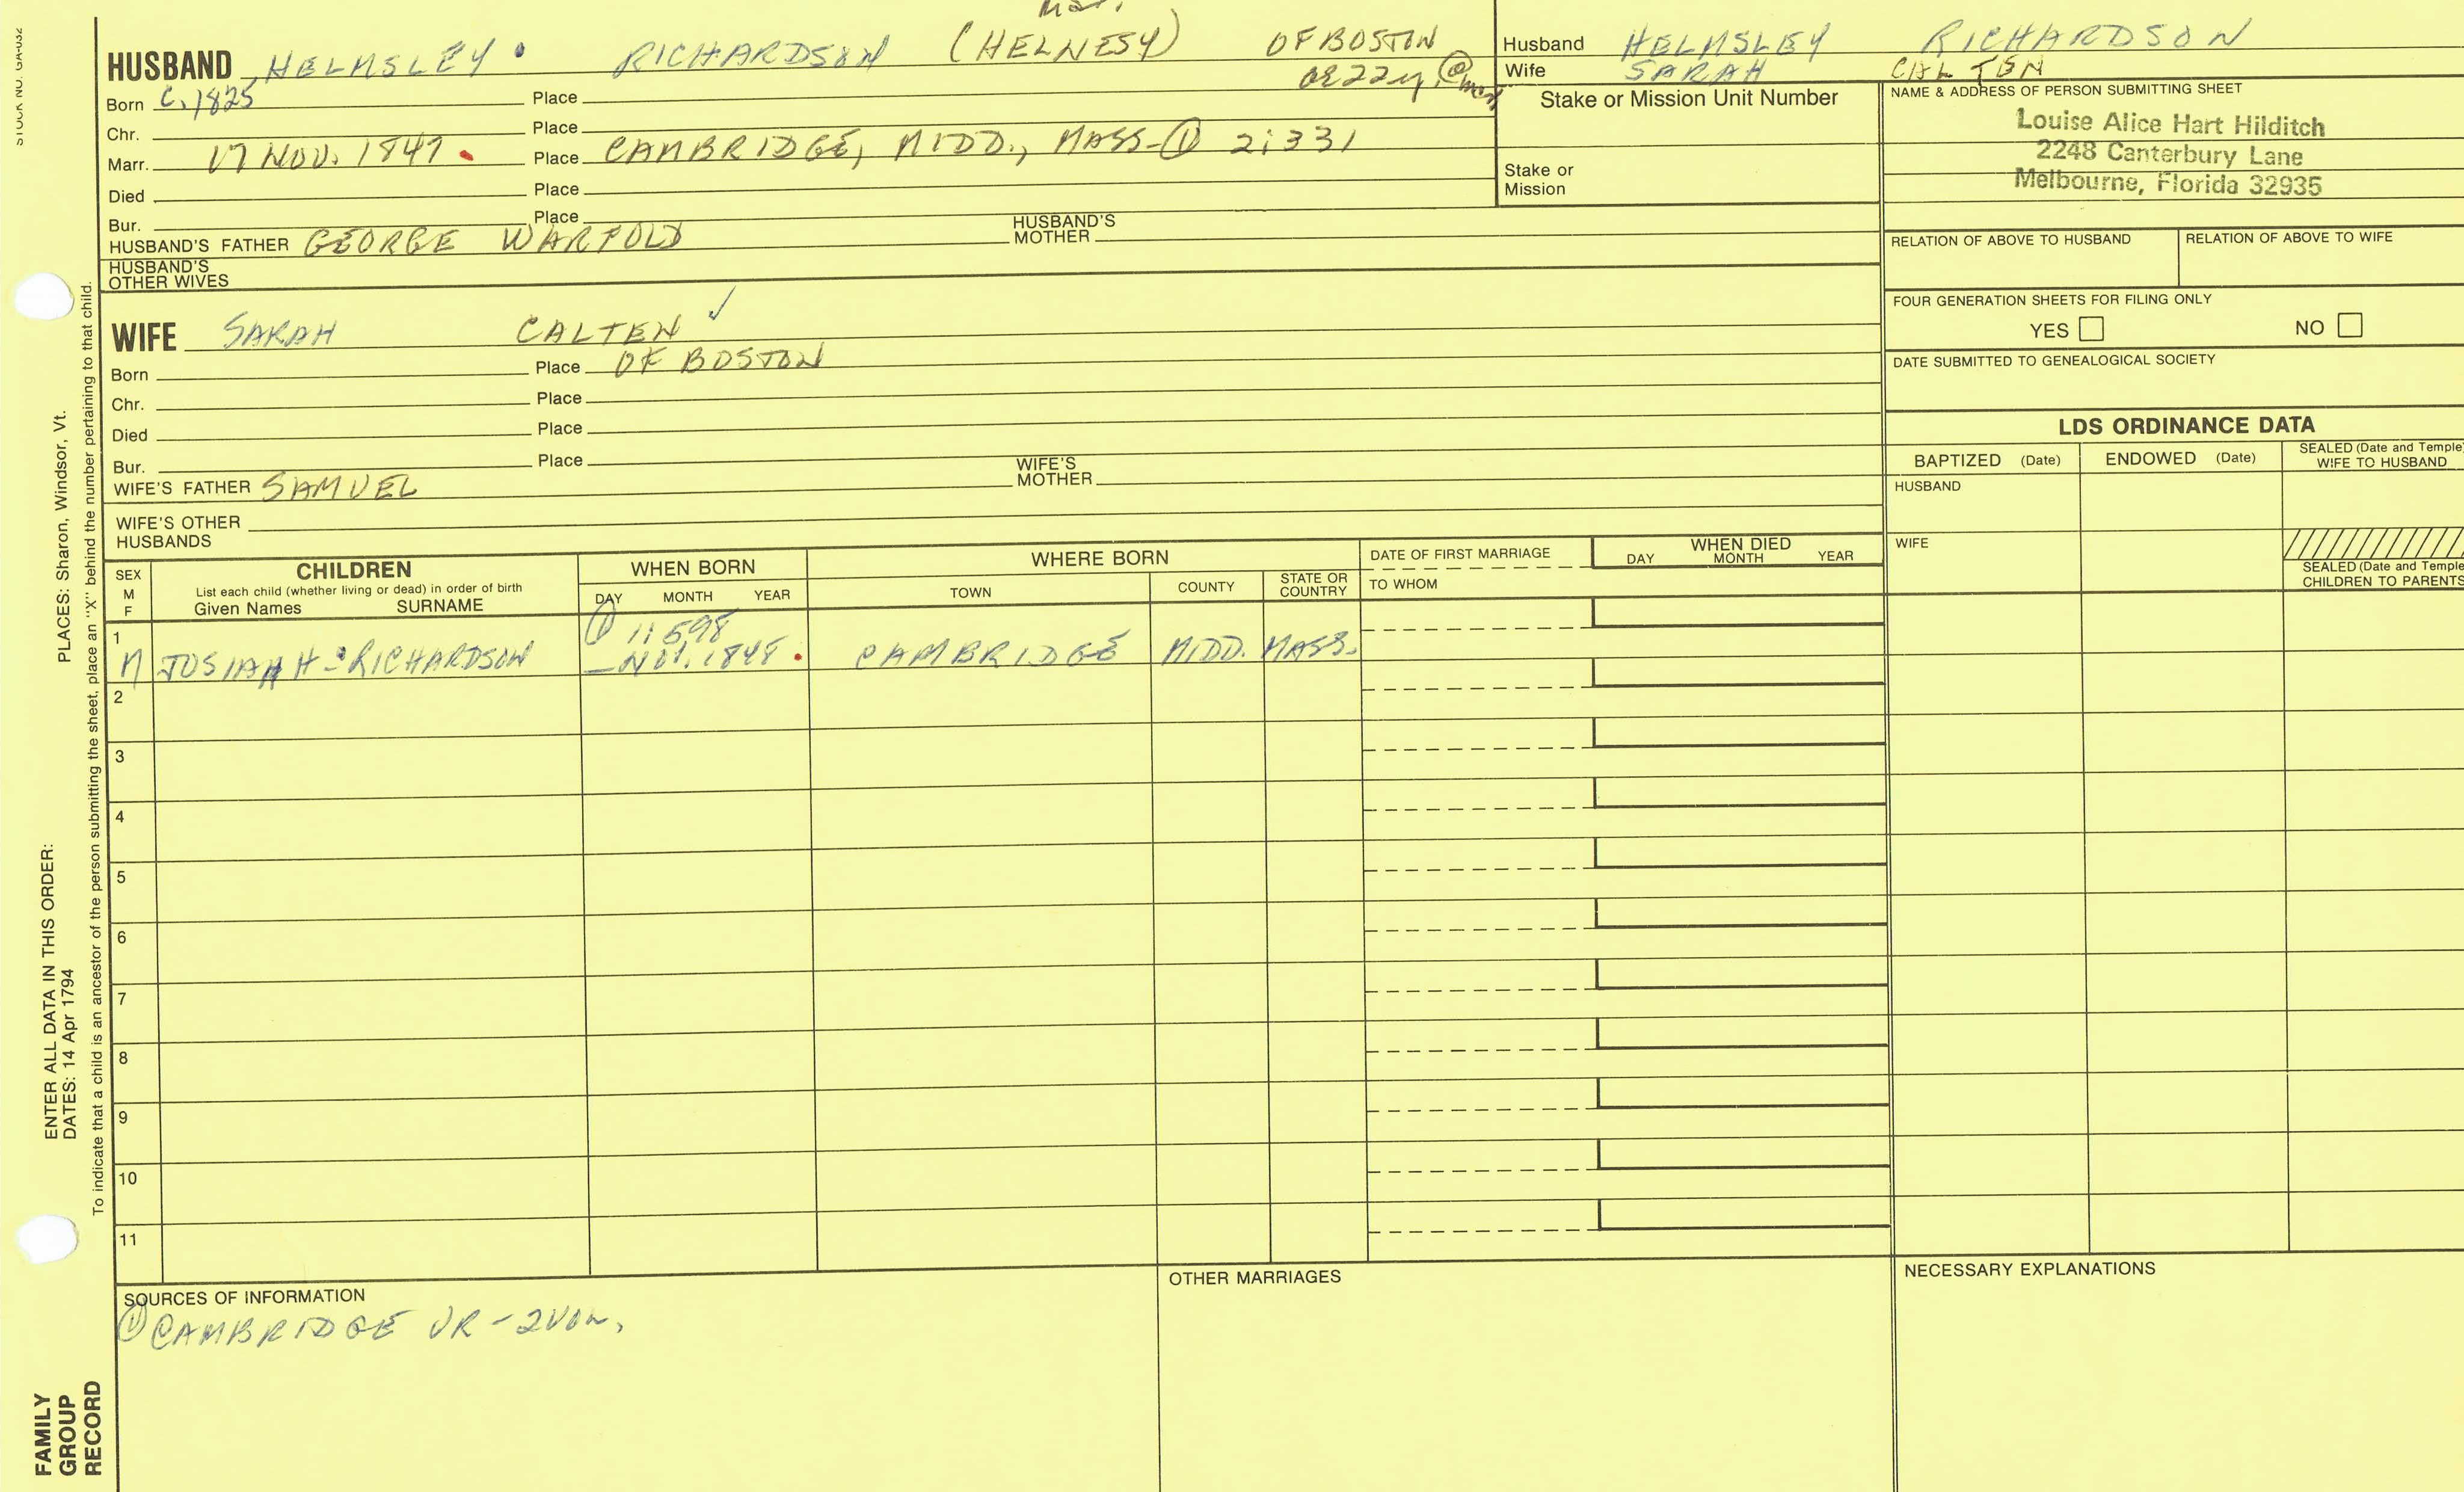 STOCK NO. GA-032
Mar.
HUSBAND HELMSLEY RICHARDSON (HELNESY) OF BOSTON
Born C. 1825 Place
Chr. Place
Marr. 17 NOV. 1847 Place CAMBRIDGE, MIDD., MASS-① 2:331
Died Place
Bur. Place
HUSBAND'S FATHER GEORGE WARFOLD HUSBAND'S MOTHER
HUSBAND'S OTHER WIVES
WIFE SARAH CALTEN ✓
Born Place OF BOSTON
Chr. Place
Died Place
Bur. Place
WIFE'S FATHER SAMUEL WIFE'S MOTHER
WIFE'S OTHER HUSBANDS
Husband HELMSLEY RICHARDSON
Wife SARAH CALTEN
Stake or Mission Unit Number
Stake or Mission
NAME & ADDRESS OF PERSON SUBMITTING SHEET
Louise Alice Hart Hilditch
2248 Canterbury Lane
Melbourne, Florida 32935
RELATION OF ABOVE TO HUSBAND RELATION OF ABOVE TO WIFE
FOUR GENERATION SHEETS FOR FILING ONLY
YES NO
DATE SUBMITTED TO GENEALOGICAL SOCIETY
LDS ORDINANCE DATA
BAPTIZED (Date) ENDOWED (Date) SEALED (Date and Temple) WIFE TO HUSBAND
HUSBAND
WIFE
SEALED (Date and Temple) CHILDREN TO PARENTS
SEX M F
CHILDREN
List each child (whether living or dead) in order of birth
Given Names SURNAME
WHEN BORN
DAY MONTH YEAR
WHERE BORN
TOWN COUNTY STATE OR COUNTRY
DATE OF FIRST MARRIAGE
TO WHOM
WHEN DIED
DAY MONTH YEAR
1 ① 1:598
M JOSIAH H RICHARDSON 1848 CAMBRIDGE MIDD. MASS.
2
3
4
5
6
7
8
9
10
11
SOURCES OF INFORMATION
① CAMBRIDGE VR-2VOL,
OTHER MARRIAGES
NECESSARY EXPLANATIONS
ENTER ALL DATA IN THIS ORDER:
DATES: 14 Apr 1794 PLACES: Sharon, Windsor, Vt.
To indicate that a child is an ancestor of the person submitting the sheet, place an "X" behind the number pertaining to that child.
FAMILY
GROUP
RECORD